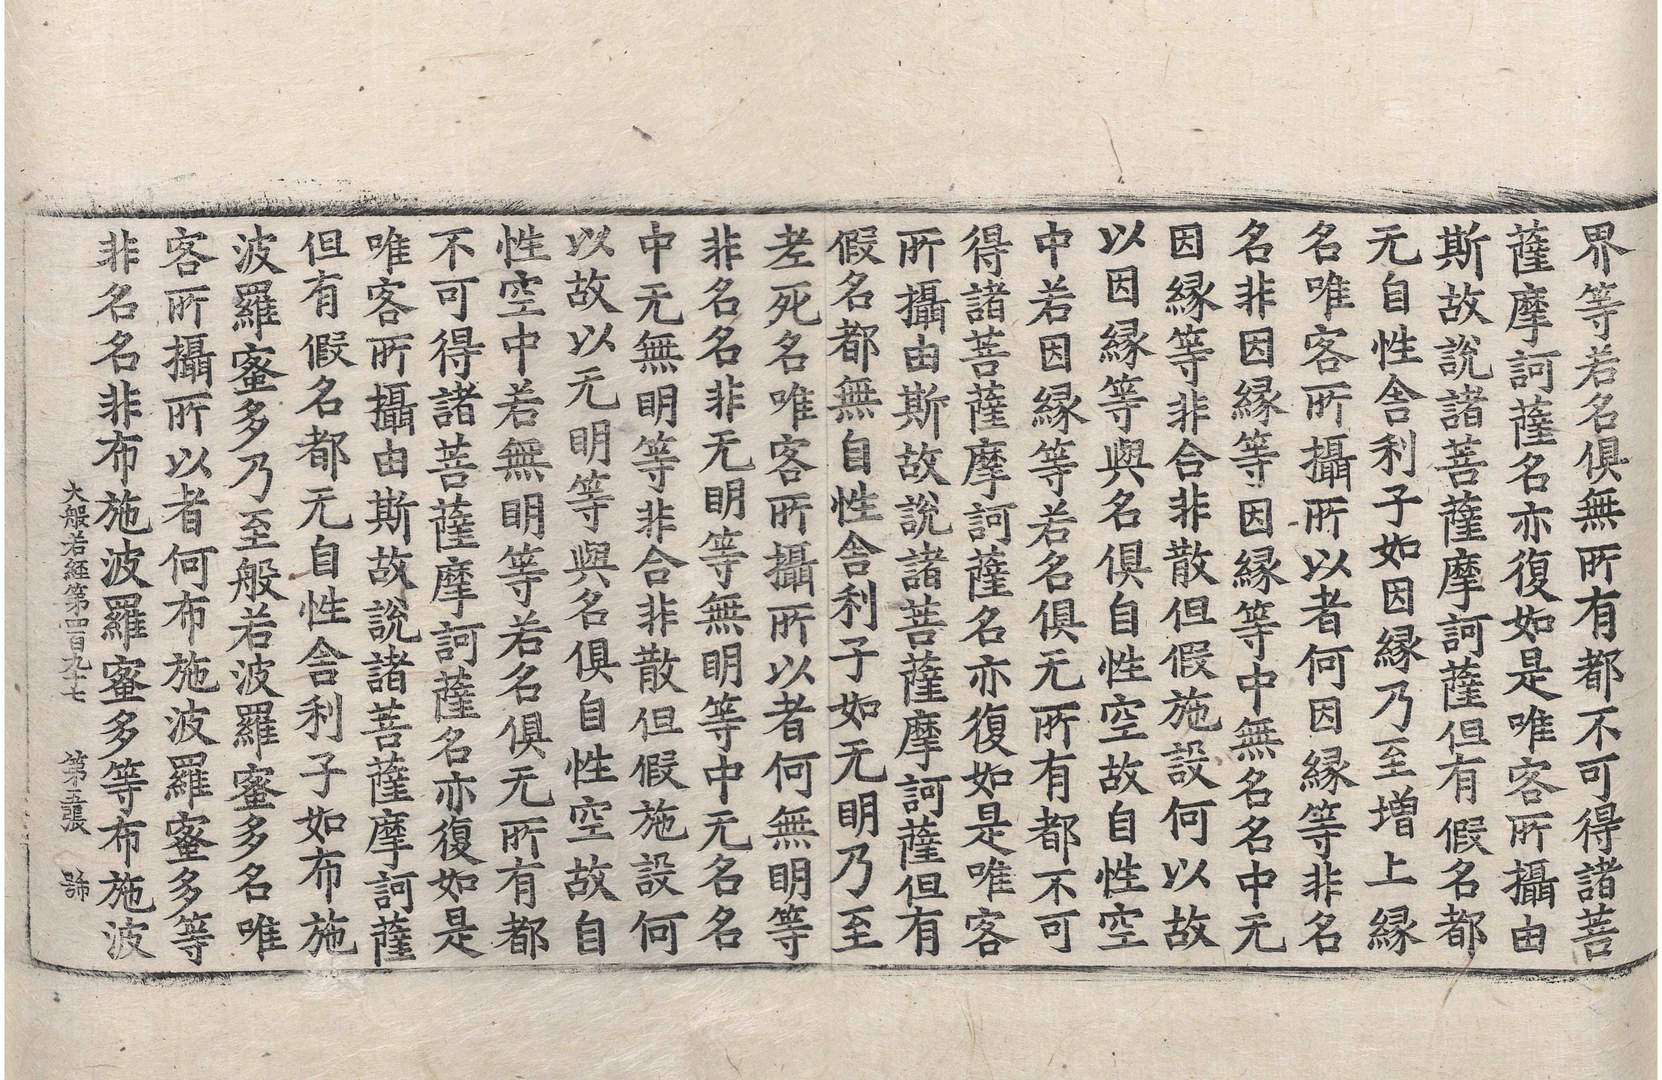 界等若名俱無所有都不可得諸菩
薩摩訶薩名亦復如是唯客所攝由
斯故說諸菩薩摩訶薩但有假名都
无自性舎利子如因縁乃至增上縁
名唯客所攝所以者何因縁等非名
名非因縁等因縁等中無名名中无
因縁等非合非散但假施設何以故
以因縁等與名俱自性空故自性空
中若因縁等若名俱无所有都不可
得諸菩薩摩訶薩名亦復如是唯客
所攝由斯故說諸菩薩摩訶薩但有
假名都無自性舎利子如无明乃至
老死名唯客所攝所以者何無明等
非名名非无明等無明等中无名名
中无無明等非合非散但假施設何
以故以无明等與名俱自性空故自
性空中若無明等若名俱无所有都
不可得諸菩薩摩訶薩名亦復如是
唯客所攝由斯故說諸菩薩摩訶薩
但有假名都无自性舎利子如布施
波羅蜜多乃至般若波羅蜜多名唯
客所攝所以者何布施波羅蜜多等
非名名非布施波羅蜜多等布施波
大般若経第四百九十七 第五張 號